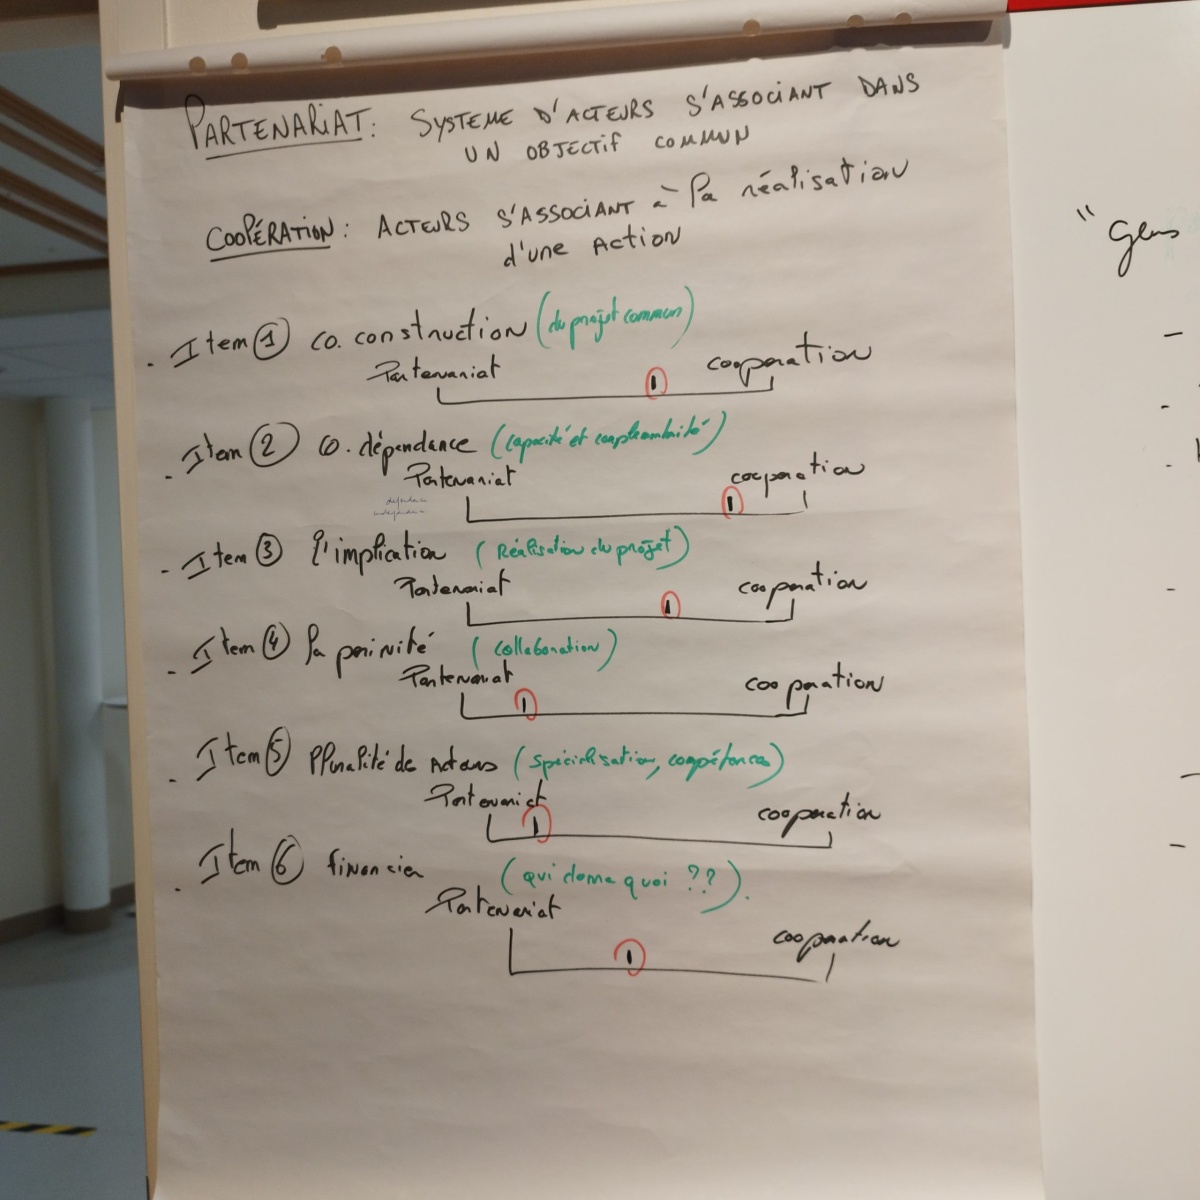 PARTENARIAT: SYSTEME D'ACTEURS S'ASSOCIANT DANS
UN OBJECTIF COMMUN
COOPÉRATION: ACTEURS S'ASSOCIANT à la réalisation
d'une action
. Item 1 co. construction (du projet commun)
Partenariat cooperation
. Item 2 co. dépendance (capacité et complémentarité)
Partenariat cooperation
- Item 3 l'implication (Réalisation du projet)
Partenariat cooperation
- Item 4 la
(collaboration)
Partenariat cooperation
- Item 5 Pluralité de Acteurs (spécialisation, compétences)
Partenariat cooperation
- Item 6 financier (qui donne quoi ??).
Partenariat cooperation
" Gens